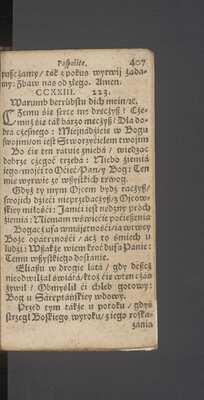 Pospolite. 407
puszczamy / tak z pokus wyrwij żąda-
my: Zbaw nas od złego. Amen.
CCXXIII. 223.
Warumb betrübstu dich mein / ꝛc.
Czemu się serce me dręczysz / Cze-
muż się tak barzo męczysz / Dla do-
bra czesnego: Miej nadzieię w Bogu
swoim on iest Stworzyćielem twoim
Bo ćię ten ratuie z nieba / wiedząc
dobrze czego trzeba: Niebo ziemiá
iego / moj to Oćiec / Pan / y Bog: Ten
mię wyrwie ze wszystkich trwog.
Gdyż ty mym Ojcem bydź raczysz /
swojich dźieći nie przebaczysz / z Ojcow-
skiey miłośći: Jam ći iest nędzny proch
źiemia: Nie mam w świećie poćieszenia
Bogacz ufa w majętnośći / ia w twey
Boże opatrznośći / acż to śmiech u
ludźi: Wszakże wiem kto dufa Panie:
Temu wszystkiego dostanie.
Eliasu w drogie lata / gdy deszcz
nie odwilżał świáta / ktoż ćię wten czas
żywił / Obmyślił ći chleb gotowy:
Bog u Sareptańskiey wdowy.
Przed tym także u potoku / gdyś
strzegł Boskiego wyroku / z iego roska-
zania